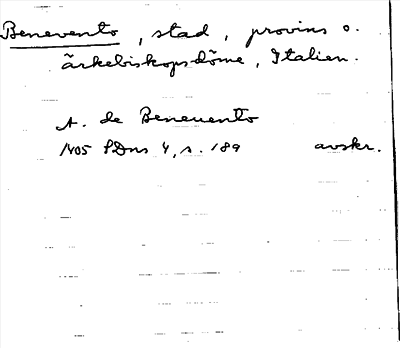 Benevento, stad, provins o.
ärkebiskopsdöme, Italien.
A. de Beneuento
1405 SDns 4, s. 189 avskr.